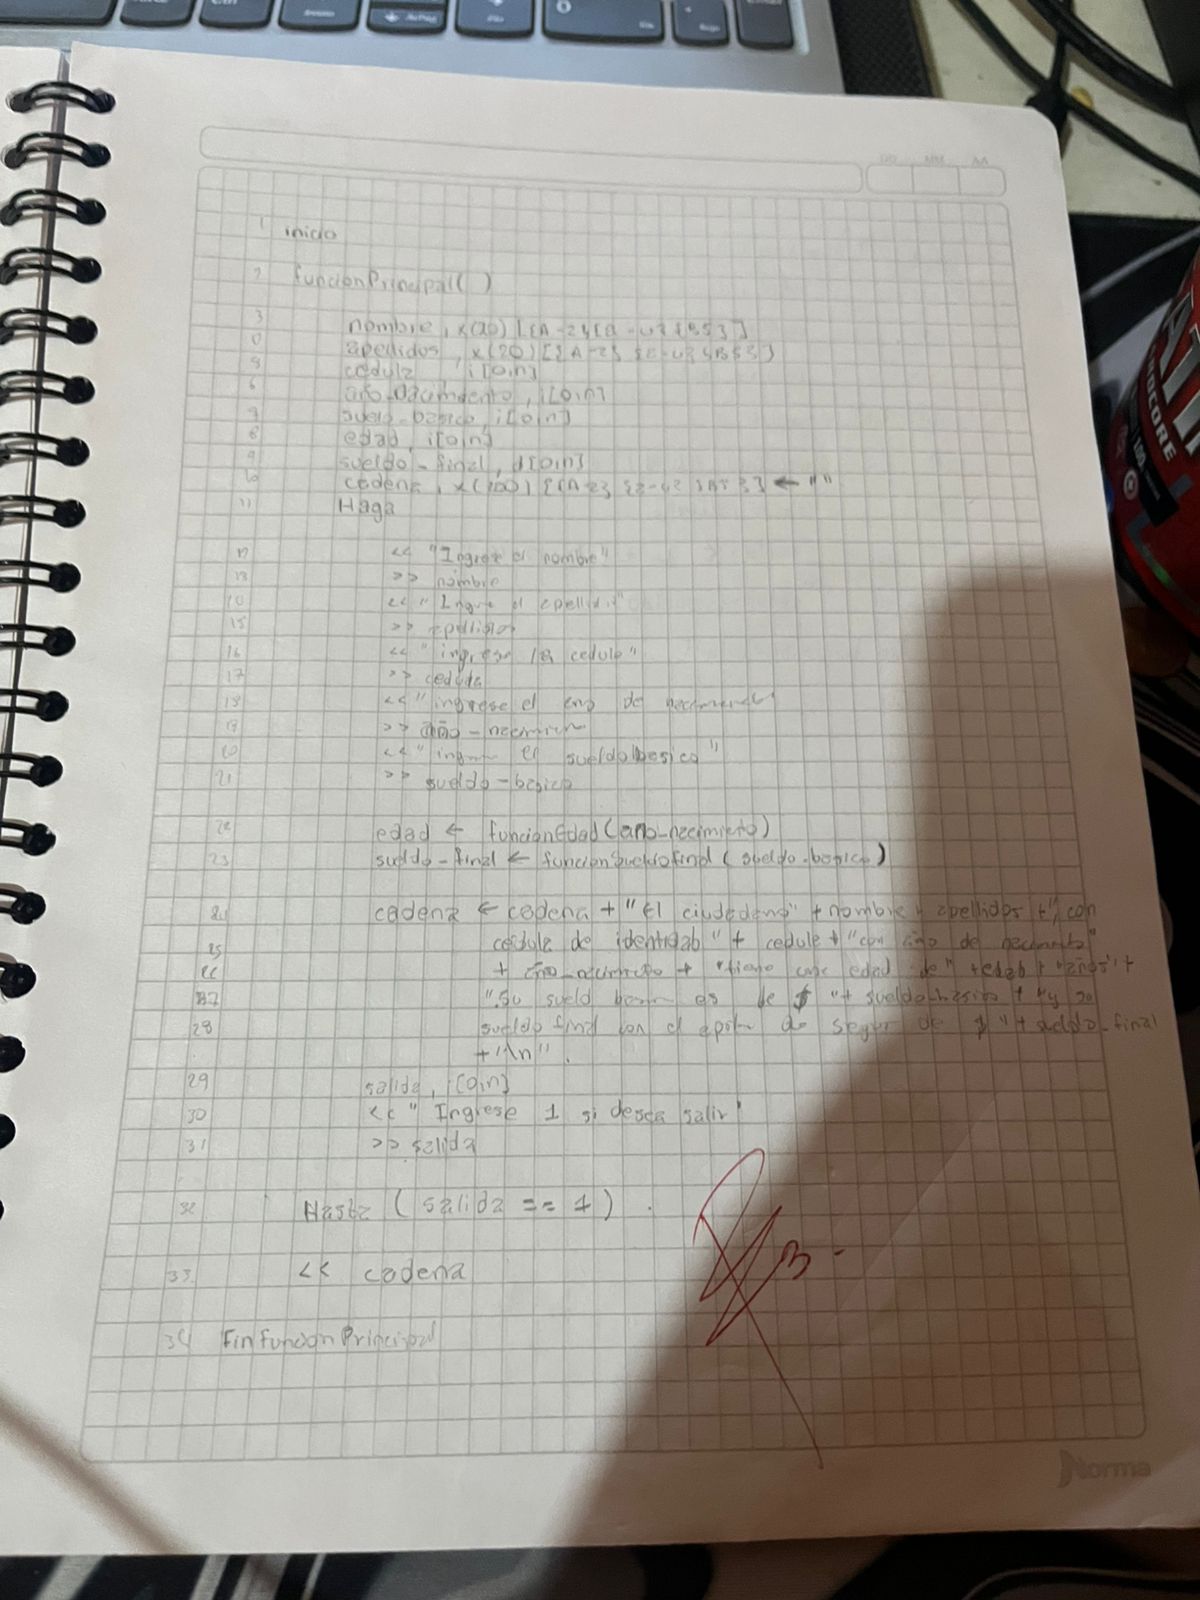 DD MM AA
1 inicio
2 funcionPrincipal( )
3 nombre, x(20) [{A-Z}{a-
apellidos, x(20) [{A-Z}
cedula, i[0,n]
6 año_nacimiento, i[0,n]
sueldo_basico, i[0,n]
8 edad, i[0,n]
9 sueldo_final, d[0,n]
10 cadena, x(200) ← " "
11 Haga
12 << "Ingrese el nombre"
13 >> nombre
<< "Ingrese el apellido"
15 >> apellidos
16 << "ingrese la cedula"
17 >> cedula
18 << "ingrese el año de nacimiento
19 >> año_nacimiento
20 << " el sueldo basico"
21 >> sueldo-basico
22 edad ← funcionEdad(año_nacimiento)
23 sueldo-final ← funcionSueldoFinal (sueldo-basico)
24 cadena ← cadena + "El ciudadano" + nombre + apellidos + " con
25 cedula de identidad" + cedula + "con año de nacimiento"
26 + año_nacimiento + "tiene una edad de" + edad + "años" +
27 ".Su sueldo es de $ " + sueldo-basico + "y su
28 sueldo final con el aporte de seguro de $ " + sueldo_final
+ "\n".
29 salida, i[0,n]
30 << " Ingrese 1 si desea salir"
31 >> salida
32 Hasta ( salida == 1 ) .
33 << cadena
34 FinfuncionPrincipal
Norma